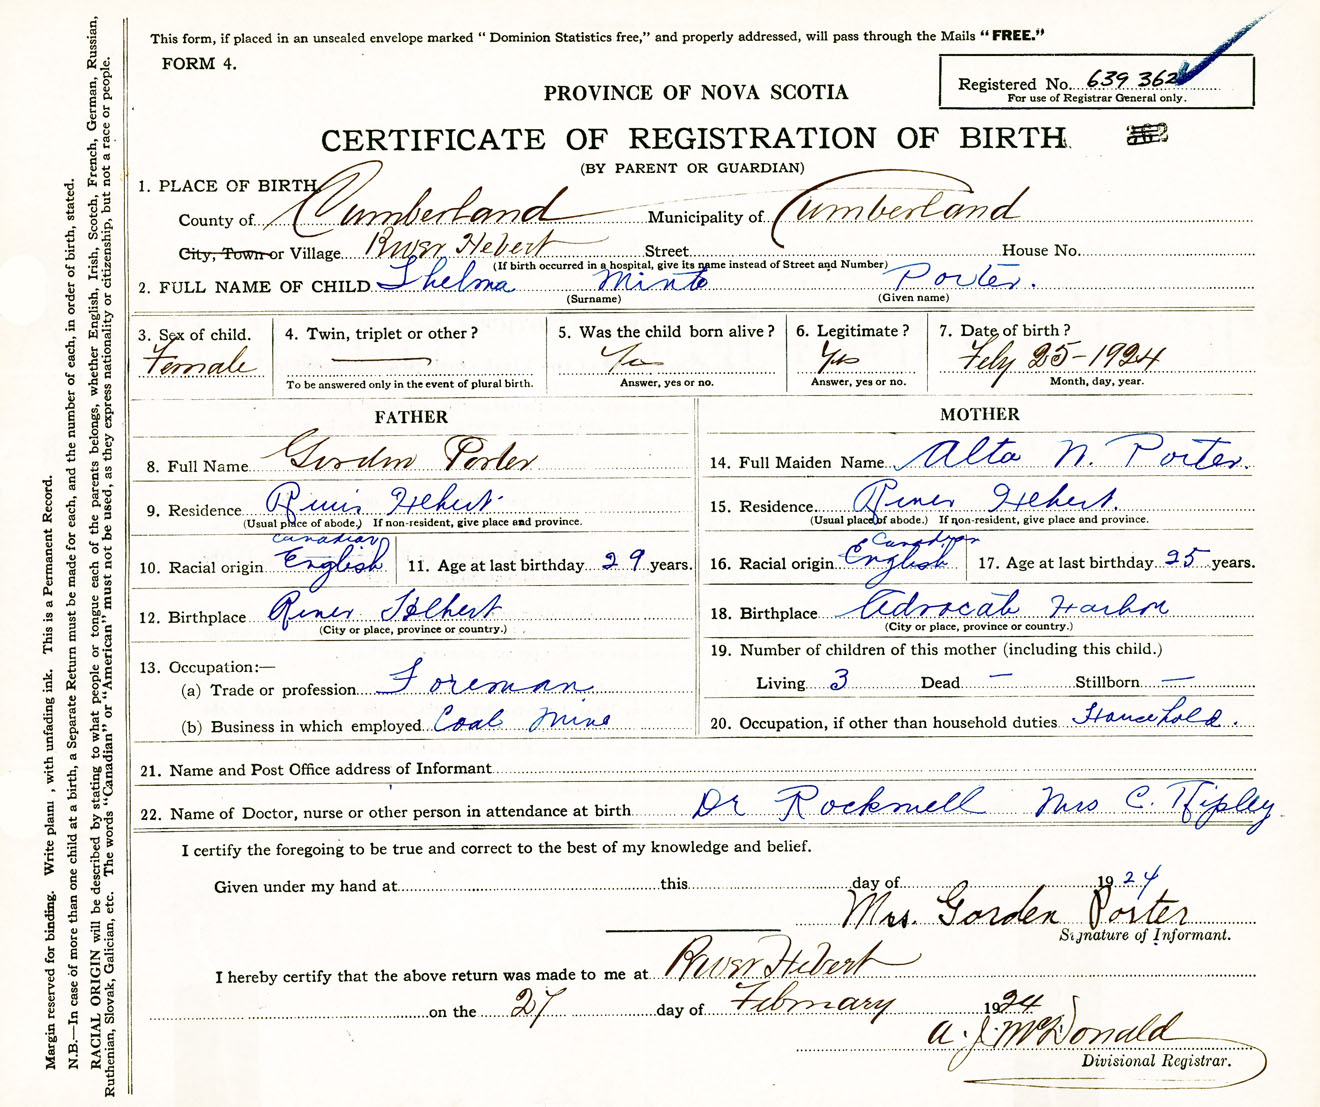 This form, if placed in an unsealed envelope marked “ Dominion Statistics free,” and properly addressed, will pass through the Mails “ FREE.”
FORM 4.
Registered No. 639 362
For use of Registrar General only.
PROVINCE OF NOVA SCOTIA
CERTIFICATE OF REGISTRATION OF BIRTH
(BY PARENT OR GUARDIAN)
1. PLACE OF BIRTH
County of Cumberland Municipality of Cumberland
City, Town or Village River Hebert Street House No.
(If birth occurred in a hospital, give its name instead of Street and Number)
2. FULL NAME OF CHILD Thelma Minto Porter.
(Surname) (Given name)
3. Sex of child. 4. Twin, triplet or other ? 5. Was the child born alive ? 6. Legitimate ? 7. Date of birth ?
Female — Yes Yes Feby 25-1924
To be answered only in the event of plural birth. Answer, yes or no. Answer, yes or no. Month, day, year.
FATHER MOTHER
8. Full Name Gordon Porter 14. Full Maiden Name Alta N. Porter.
9. Residence River Hebert 15. Residence River Hebert.
(Usual place of abode.) If non-resident, give place and province. (Usual place of abode.) If non-resident, give place and province.
Canadian Canadian
10. Racial origin English 11. Age at last birthday 29 years. 16. Racial origin English 17. Age at last birthday 25 years.
12. Birthplace River Hebert 18. Birthplace Advocate Harbor
(City or place, province or country.) (City or place, province or country.)
13. Occupation:— 19. Number of children of this mother (including this child.)
(a) Trade or profession Foreman Living 3 Dead — Stillborn —
(b) Business in which employed Coal Mine 20. Occupation, if other than household duties Household.
21. Name and Post Office address of Informant
22. Name of Doctor, nurse or other person in attendance at birth Dr Rockwell Mrs C. Ripley
I certify the foregoing to be true and correct to the best of my knowledge and belief.
Given under my hand at this day of 1924
Mrs. Gorden Porter
Signature of Informant.
I hereby certify that the above return was made to me at River Hebert
on the 27 day of February 1924
A. J. McDonald
Divisional Registrar.
Margin reserved for binding. Write plain , with unfading ink. This is a Permanent Record.
N.B.—In case of more than one child at a birth, a Separate Return must be made for each, and the number of each, in order of birth, stated.
RACIAL ORIGIN will be described by stating to what people or tongue each of the parents belongs, whether English, Irish, Scotch, French, German, Russian,
Ruthenian, Slovak, Galician, etc. The words “Canadian” or “American” must not be used, as they express nationality or citizenship, but not a race or people.